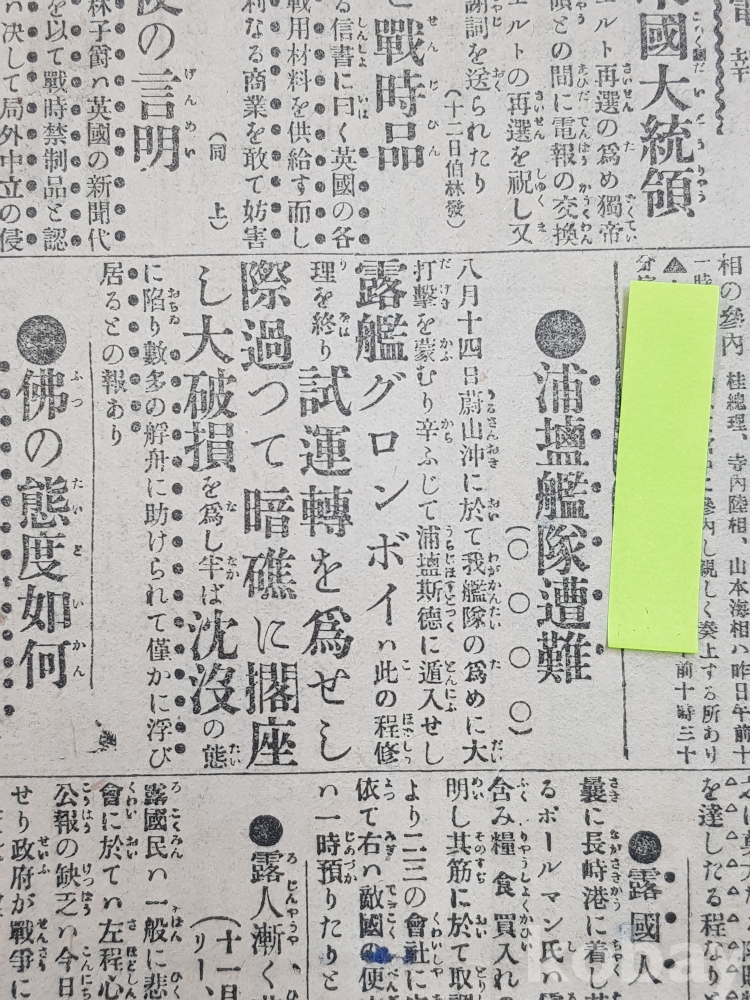 米國大統領
ルト再選の爲め獨帝
領との間に電報の交換
エルトの再選を祝し又
謝詞を送られたり
(十二日伯林發)
と戰時品
る信書に曰く英國の各
戰用材料を供給す而し
利なる商業を敢て妨害
(同上)
の言明
林子爵ハ英國の新聞代
を以て戰時禁制品と認
ハ決して局外中立の侵
相の參內 桂總理、寺內陸相、山本海相ハ昨日午前十
參內し親しく奏上する所あり
前十時三十
●浦塩艦隊遭難
(○○○○)
八月十四日蔚山沖に於て我艦隊の爲めに大
打擊を蒙むり辛ふじて浦塩斯德に遁入せし
露艦グロンボイハ此の程修
理を終り試運轉を爲せし
際過つて暗礁に擱座
し大破損を爲し半ば沈沒の態
に陷り數多の艀舟に助けられて僅かに浮び
居るとの報あり
●佛の態度如何
を達したる程なり
●露國人
曩に長崎港に着し
るポールマン氏ハ
含み糧食買入れの
明し其筋に於て取調
より二三の會社に
依て右ハ敵國の便
ハ一時預りたりと
●露人漸く
(十一日
リー、
露國民ハ一般に悲
會に於てハ左程心
公報の缺乏ハ今日
せり政府が戰爭に